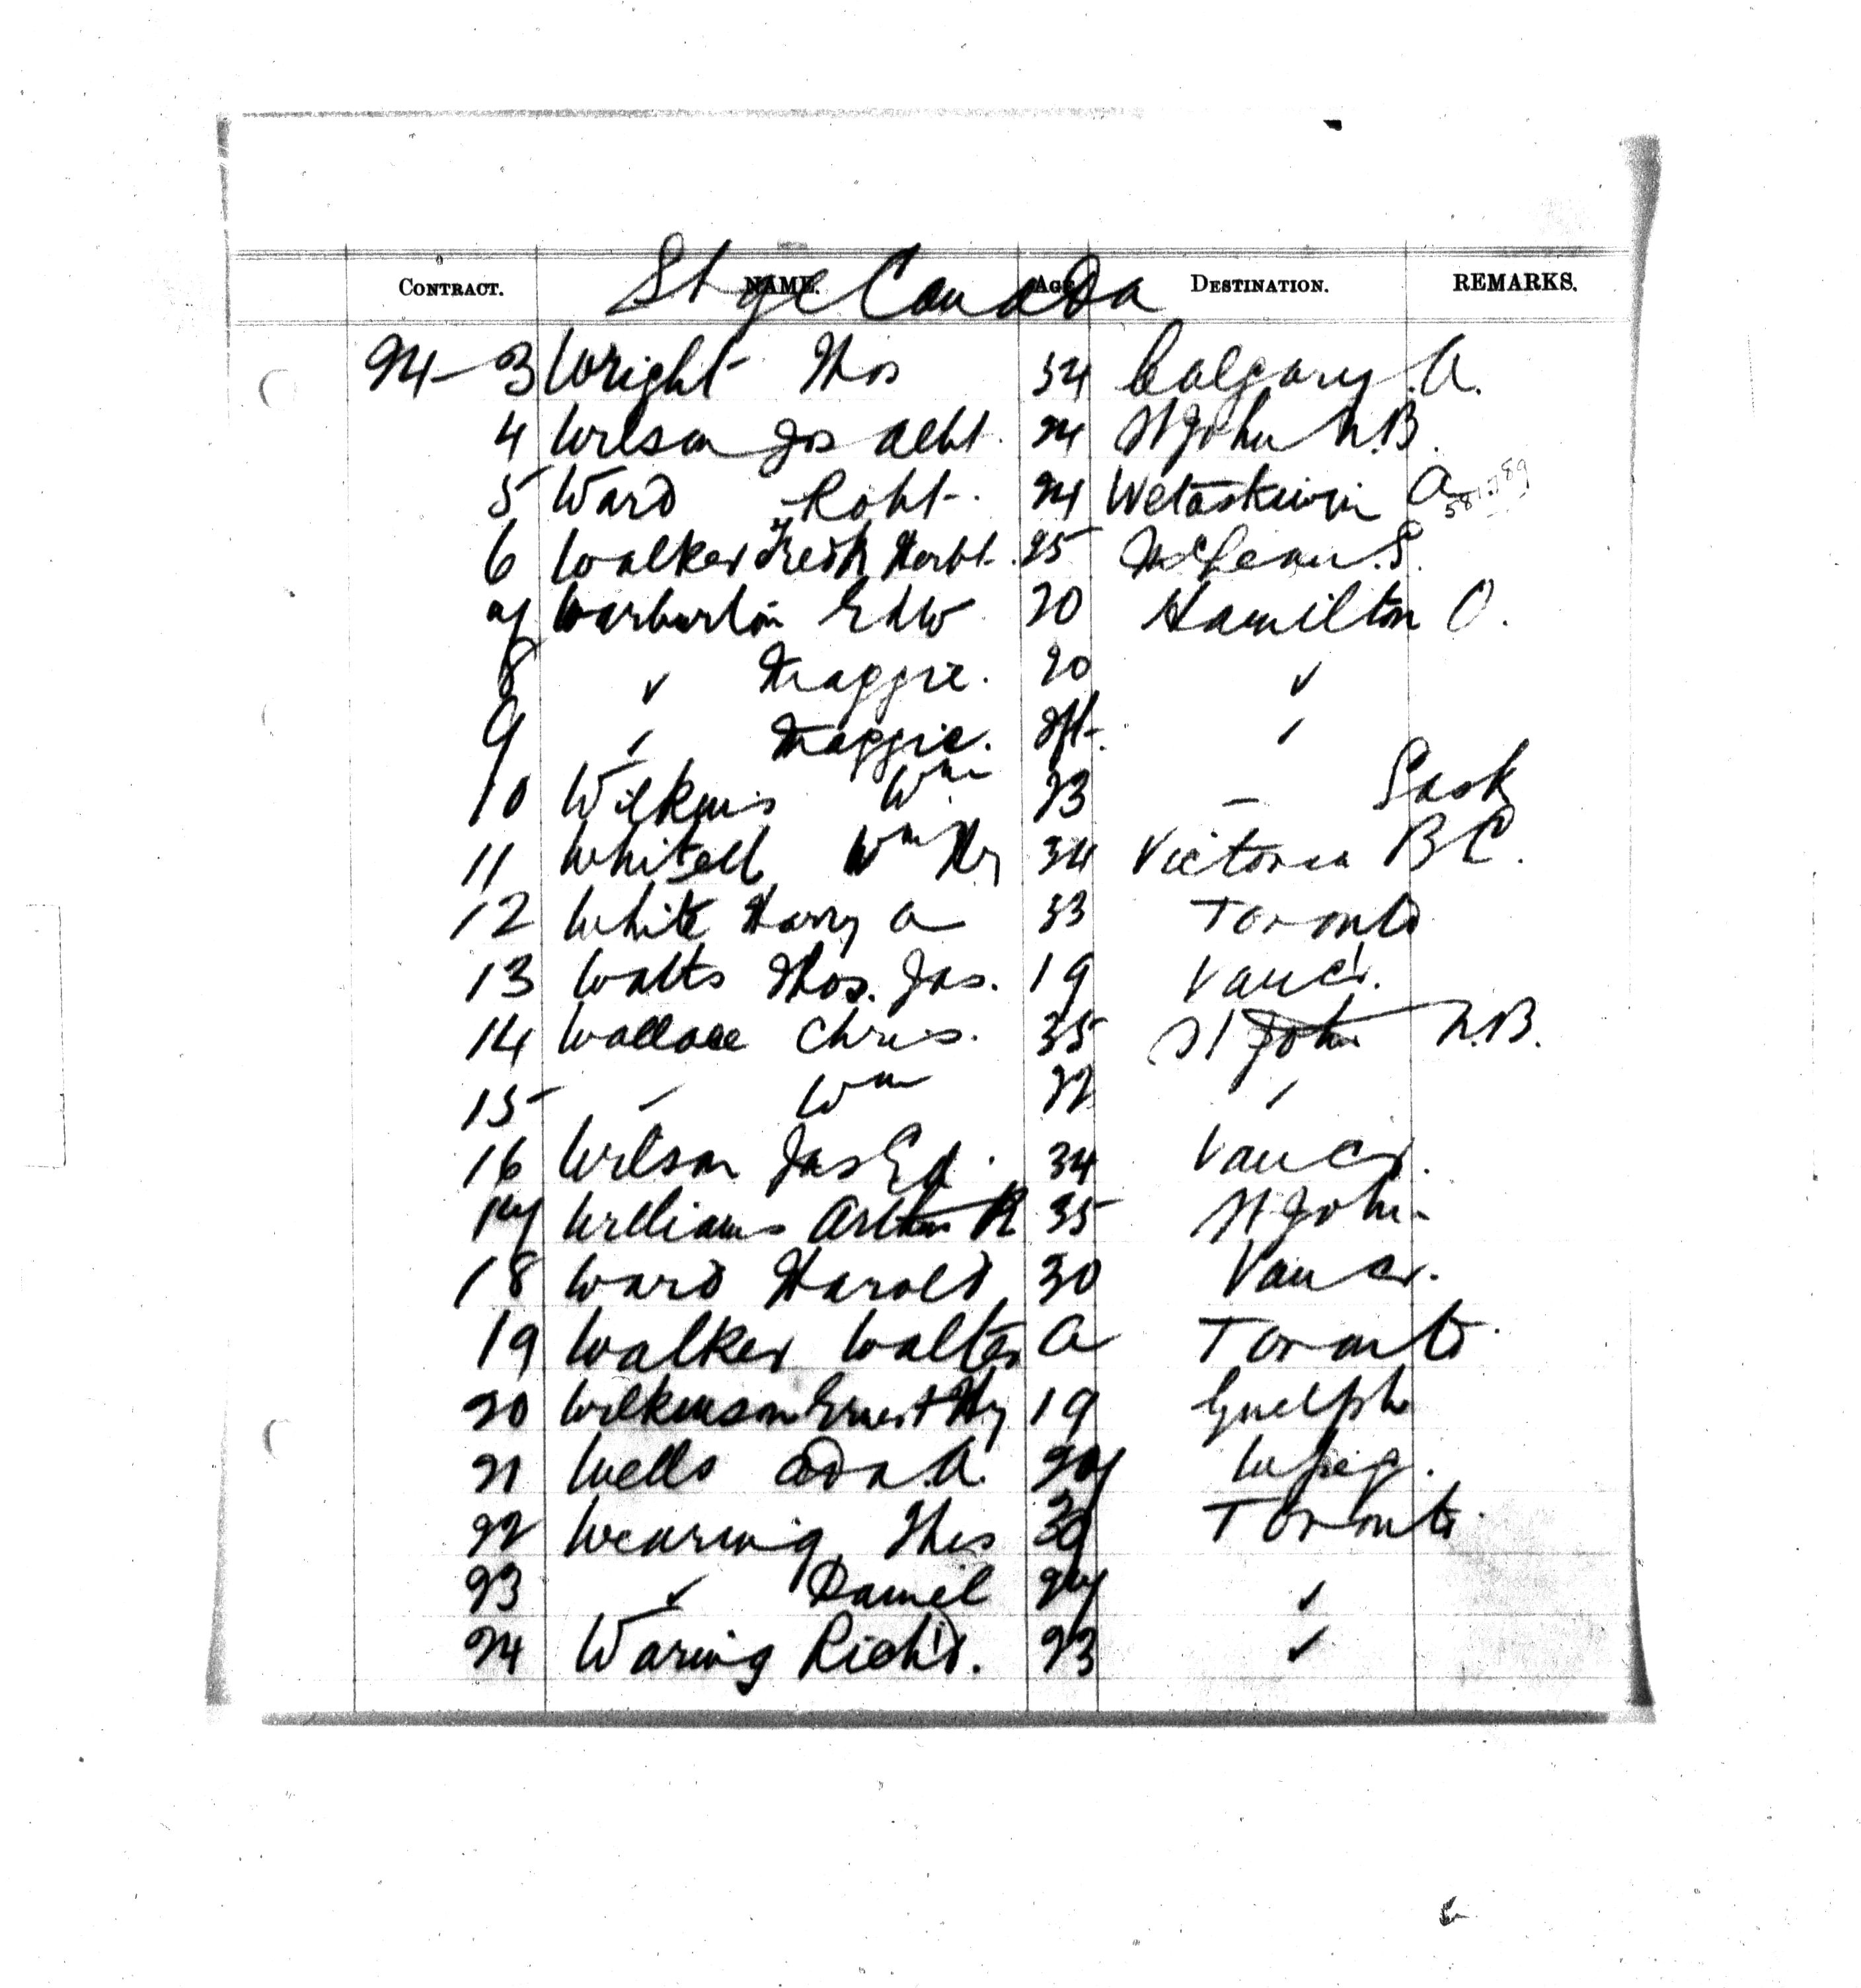 Stge Canada
CONTRACT. NAME. AGE DESTINATION. REMARKS.
24-3 Wright Thos 34 Calgary A.
4 Wilson Jos Albt. 24 St John N.B.
5 Ward Robt. 24 Wetaskiwin A
6 Walker Fredk Herbt. 25 McLean S.
7 Warburton Edw 20 Hamilton O.
8 ✓ Maggie. 20 ✓
9 ✓ Maggie. Inft. ✓
10 Wilkins Wm 23 - Sask
11 Whitsell Wm Hy 34 Victoria B C.
12 White Harry A 33 Toronto
13 Watts Thos. Jas. 19 Vancr.
14 Wallace Chris. 35 St John N.B.
15 ✓ Wm 22 ✓
16 Wilson Jas Ed. 34 Vancr.
17 Williams Arthur R 35 St John
18 Ward Harold 30 Vancr.
19 Walker Walter A Toronto.
20 Wilkinson Ernest Hy 19 Guelph
21 Wells Ada. A. 27 Wpeg.
22 Wearing Thos Toronto.
23 ✓ Daniel 27 ✓
24 Waring Richd. 23 ✓